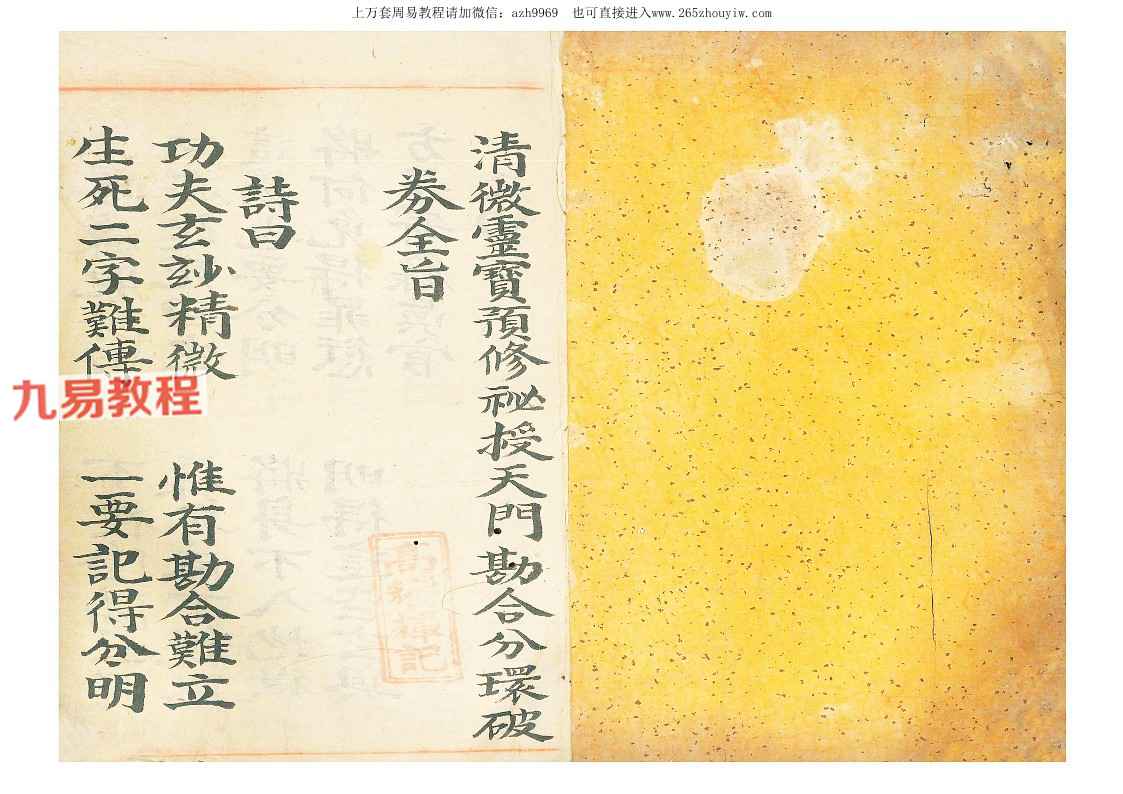 上万套周易教程请加微信：azh9969 也可直接进入www.265zhouyiw.com
清微靈寶預修祕授天門勘合分環破
券全旨
詩曰
功夫玄玅精微 惟有勘合難立
生死二字難傳 一要記得分明
九易教程